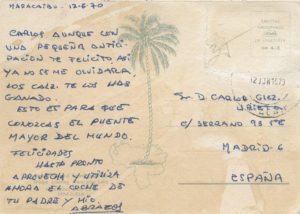 MARACAIBO, 12-6-70
CARLOS AUNQUE CON
UNA PEQUEÑA ANTICI-
PACION TE FELICITO ASI
YA NO SE ME OLVIDARA
LOS TE LOS HAS
GANADO.
ESTO ES PARA QUE
CONOZCAS EL PUENTE
MAYOR DEL MUNDO.
FELICIDADES
HASTA PRONTO
APROVECHA Y UTILIZA
AHORA EL COCHE DE
TU PADRE Y MIO.
ABRAZOS
12 JUN 1970
Sr. D. CARLOS
C/ SERRANO 93
MADRID-6
ESPAÑA